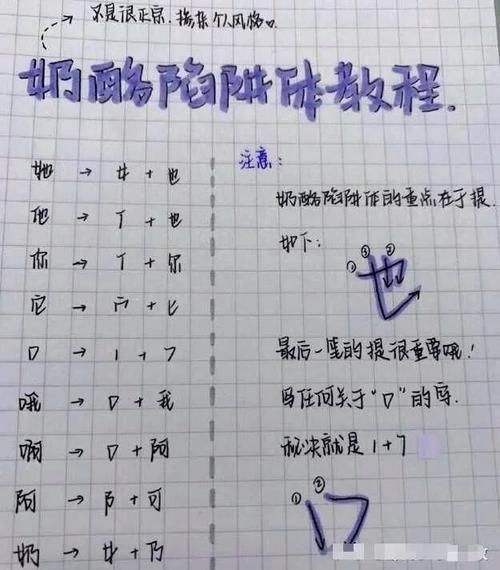 不是很正宗，掺杂个人风格。
奶酪陷阱体教程.
她 → 女 + 也
他 → 亻 + 也
你 → 亻 + 尔
它 → 宀 + 匕
口 → 1 + 7
哦 → 口 + 我
啊 → 口 + 阿
阿 → 阝 + 可
奶 → 女 + 乃
注意：
奶酪陷阱体的重点在于提.
如下：
① ③ ②
也
最后一笔的提很重要哦！
写任何关于“口”的字.
秘诀就是 1 + 7
① ②
口